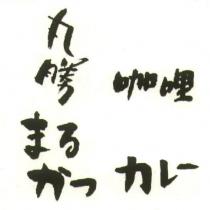 丸勝
咖喱
まる
かつ
カレー